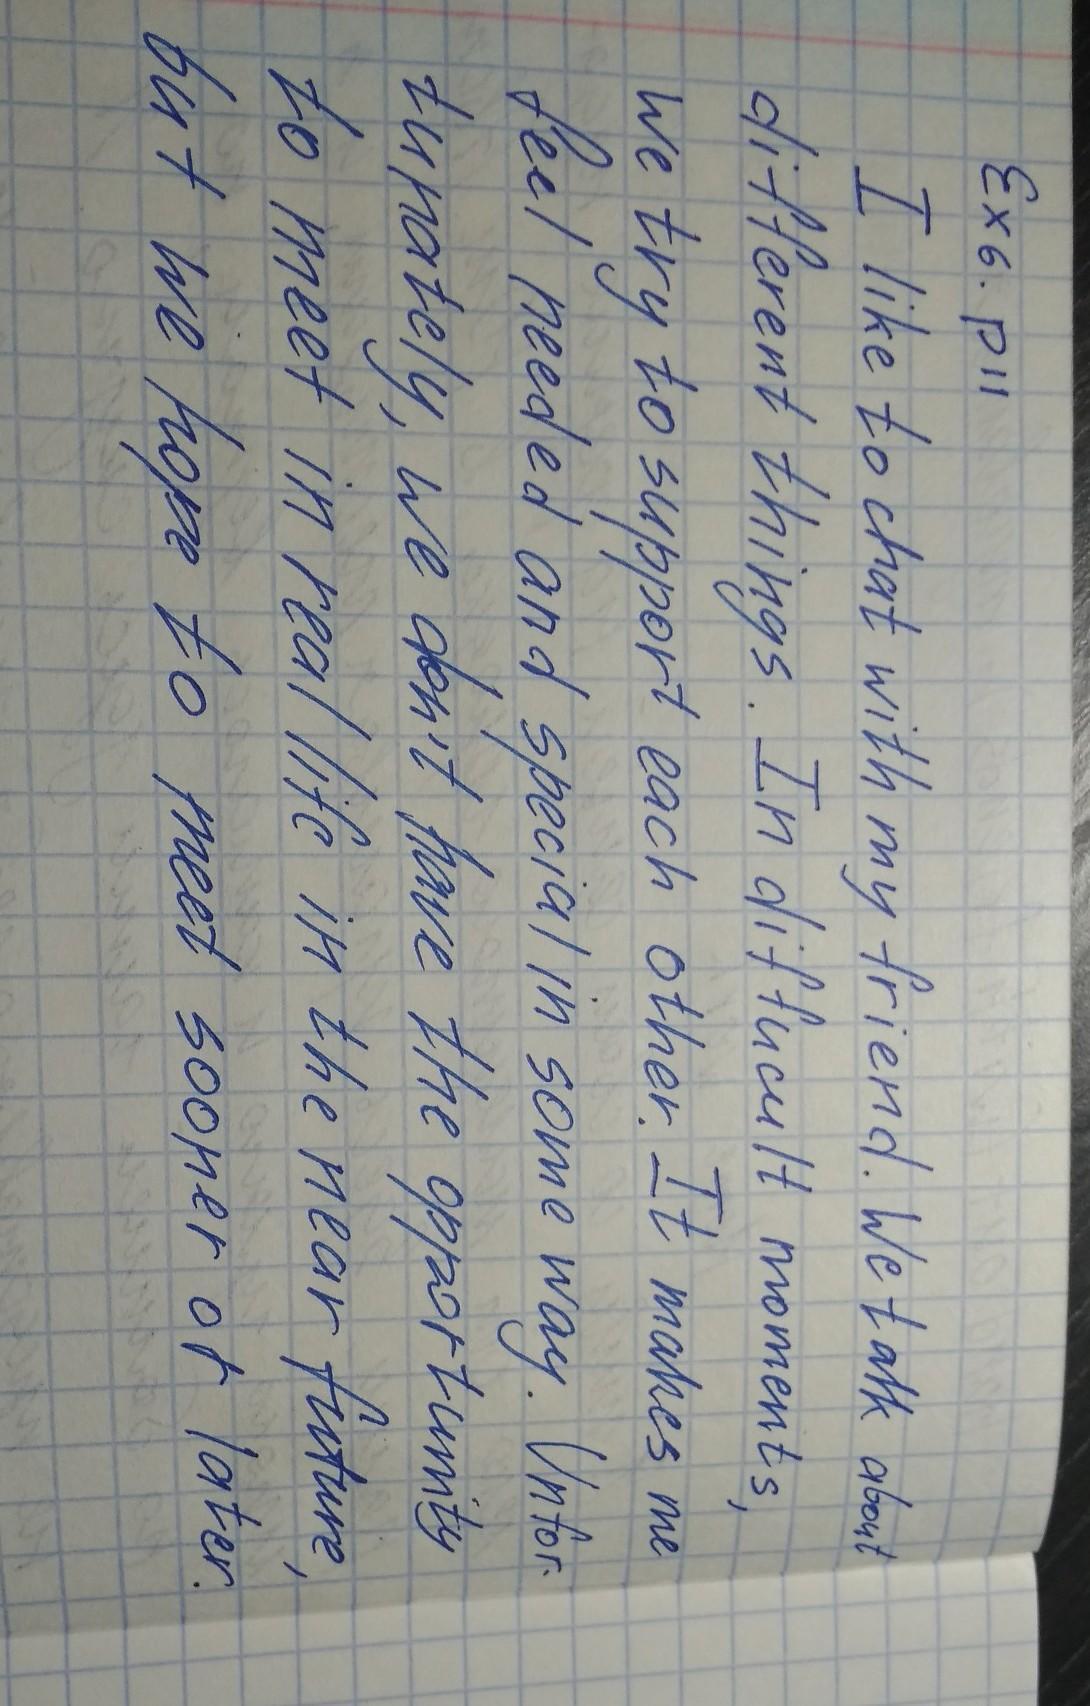 Ex 6. p 11
I like to chat with my friend. We talk about
different things. In difficult moments,
we try to support each other. It makes me
feel needed and special in some way. Unfor-
tunately, we don't have the opportunity
to meet in real life in the near future,
but we hope to meet sooner or later.